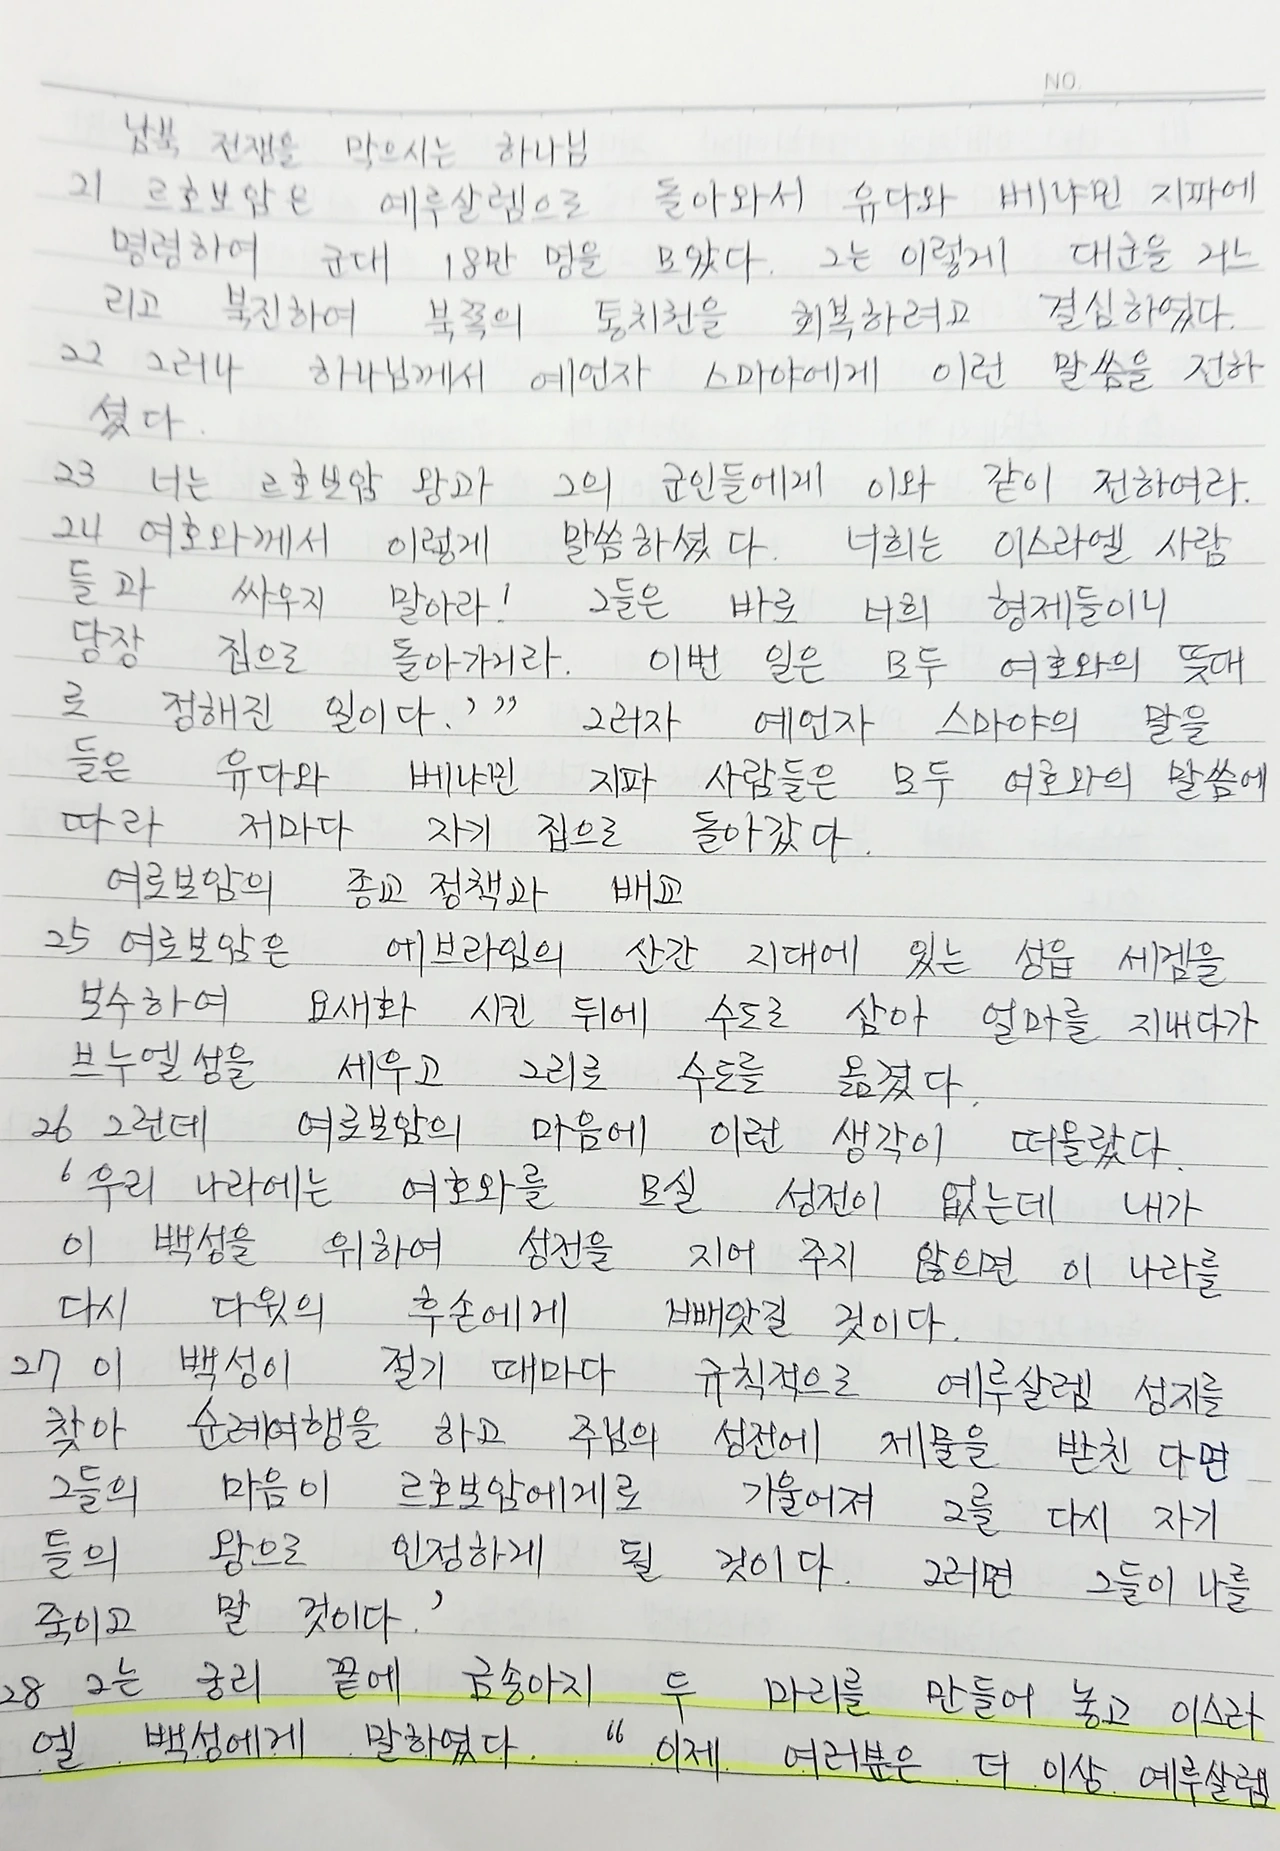 NO.
남북 전쟁을 막으시는 하나님
21 르호보암은 예루살렘으로 돌아와서 유다와 베냐민 지파에
명령하여 군대 18만 명을 모았다. 그는 이렇게 대군을 거느
리고 북진하여 북쪽의 통치권을 회복하려고 결심하였다.
22 그러나 하나님께서 예언자 스마야에게 이런 말씀을 전하
셨다.
23 너는 르호보암 왕과 그의 군인들에게 이와 같이 전하여라.
24 여호와께서 이렇게 말씀하셨다. 너희는 이스라엘 사람
들과 싸우지 말아라! 그들은 바로 너희 형제들이니
당장 집으로 돌아가거라. 이번 일은 모두 여호와의 뜻대
로 정해진 일이다.’” 그러자 예언자 스마야의 말을
들은 유다와 베냐민 지파 사람들은 모두 여호와의 말씀에
따라 저마다 자기 집으로 돌아갔다.
여로보암의 종교 정책과 배교
25 여로보암은 에브라임의 산간 지대에 있는 성읍 세겜을
보수하여 요새화 시킨 뒤에 수도로 삼아 얼마를 지내다가
브누엘성을 세우고 그리로 수도를 옮겼다.
26 그런데 여로보암의 마음에 이런 생각이 떠올랐다.
‘우리 나라에는 여호와를 모실 성전이 없는데 내가
이 백성을 위하여 성전을 지어 주지 않으면 이 나라를
다시 다윗의 후손에게 빼앗길 것이다.
27 이 백성이 절기 때마다 규칙적으로 예루살렘 성지를
찾아 순례여행을 하고 주님의 성전에 제물을 받친다면
그들의 마음이 르호보암에게로 기울어져 그를 다시 자기
들의 왕으로 인정하게 될 것이다. 그러면 그들이 나를
죽이고 말 것이다.’
28 그는 궁리 끝에 금송아지 두 마리를 만들어 놓고 이스라
엘 백성에게 말하였다. “이제 여러분은 더 이상 예루살렘